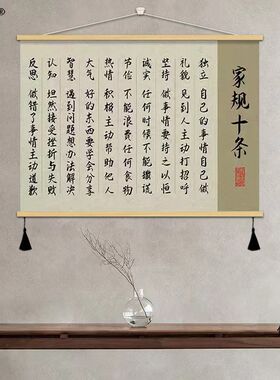 ®
家规十条
独立 自己的事情自己做
礼貌 见到人主动打招呼
坚持 做事情要持之以恒
诚实 任何时候不能撒谎
节俭 不能浪费任何食物
热情 积极主动帮助他人
大气 好的东西要学会分享
智慧 遇到问题想办法解决
认知 坦然接受挫折与失败
反思 做错了事情主动道歉